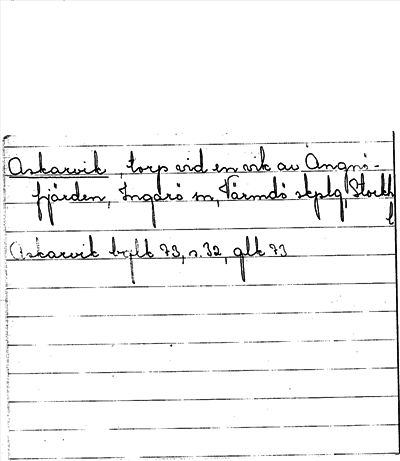 Askarvik, torp vid en vik av Ängnö-
fjärden, Ingarö sn, Värmdö skplg, Stockh
l
Askarvik bylk 73, s. 32, glk 73